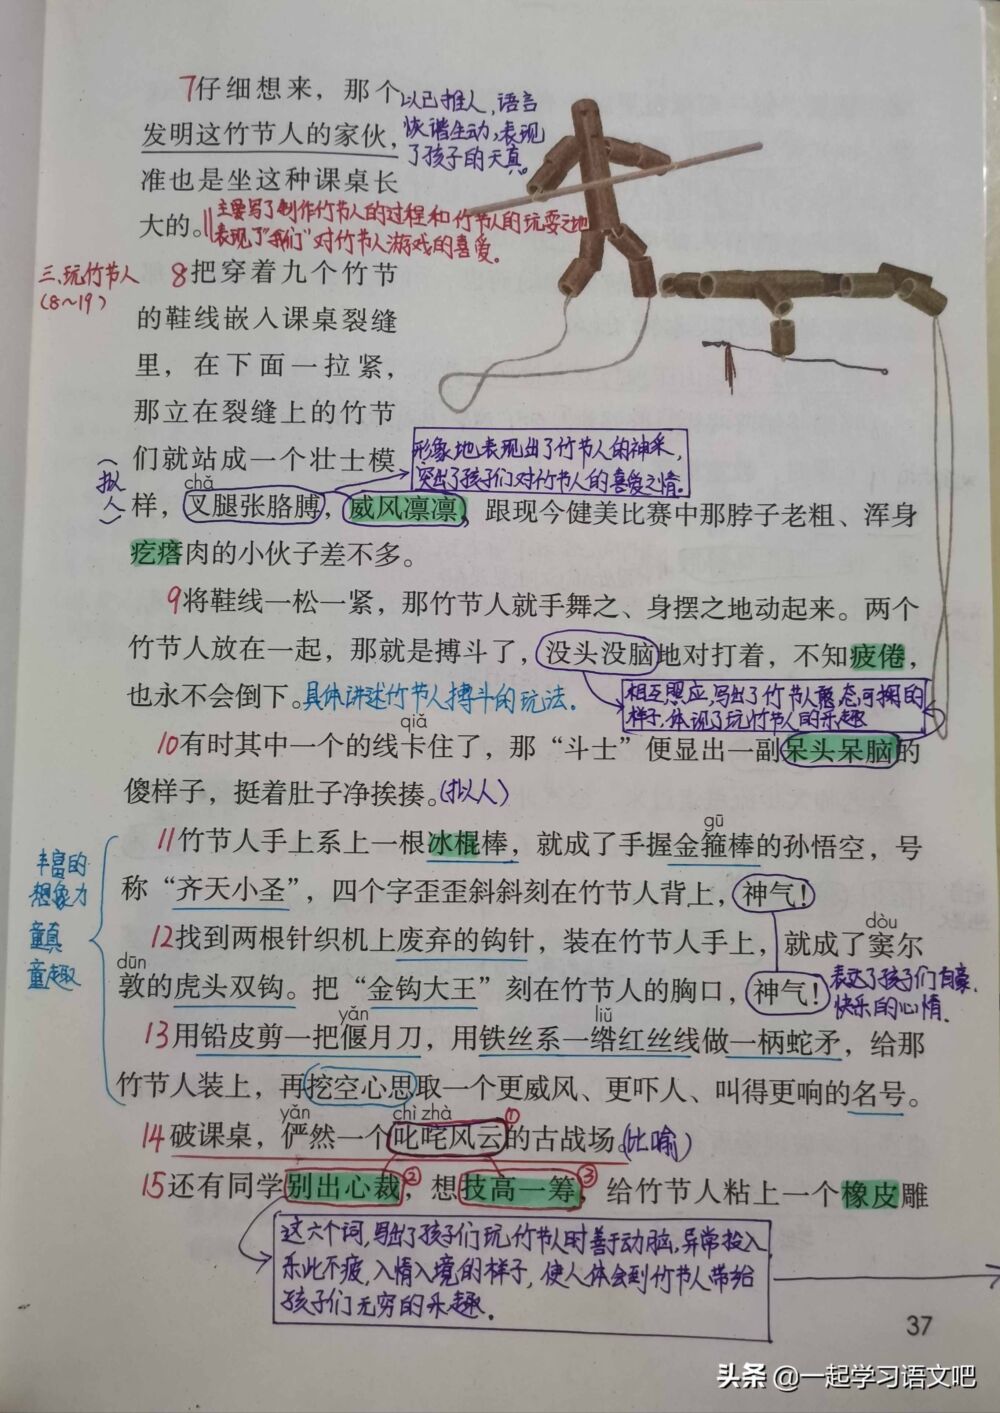 7仔细想来，那个
以己推人，语言
诙谐生动，表现
了孩子的天真。
发明这竹节人的家伙，
准也是坐这种课桌长
大的。
主要写了制作竹节人的过程和竹节人的玩耍之地
表现了“我们”对竹节人游戏的喜爱。
三、玩竹节人
(8~19)
8把穿着九个竹节
的鞋线嵌入课桌裂缝
里，在下面一拉紧，
那立在裂缝上的竹节
们就站成一个壮士模
形象地表现出了竹节人的神采，
突出了孩子们对竹节人的喜爱之情。
(拟人)
chǎ
样，叉腿张胳膊，威风凛凛，跟现今健美比赛中那脖子老粗、浑身
疙瘩肉的小伙子差不多。
9将鞋线一松一紧，那竹节人就手舞之、身摆之地动起来。两个
竹节人放在一起，那就是搏斗了，没头没脑地对打着，不知疲倦，
也永不会倒下。具体讲述竹节人搏斗的玩法.
相互照应，写出了竹节人憨态可掬的
样子，体现了玩竹节人的乐趣
qiǎ
10有时其中一个的线卡住了，那“斗士”便显出一副呆头呆脑的
傻样子，挺着肚子净挨揍。(拟人)
gū
11竹节人手上系上一根冰棍棒，就成了手握金箍棒的孙悟空，号
称“齐天小圣”，四个字歪歪斜斜刻在竹节人背上，神气！
丰富的
想象力
童真
童趣
dòu
12找到两根针织机上废弃的钩针，装在竹节人手上，就成了窦尔
dūn
敦的虎头双钩。把“金钩大王”刻在竹节人的胸口，神气！
表达了孩子们自豪、
快乐的心情.
yǎn liǔ
13用铅皮剪一把偃月刀，用铁丝系一绺红丝线做一柄蛇矛，给那
竹节人装上，再挖空心思取一个更威风、更吓人、叫得更响的名号。
yǎn chì zhà
14破课桌，俨然一个叱咤风云①的古战场。(比喻)
15还有同学别出心裁②，想技高一筹③，给竹节人粘上一个橡皮雕
这六个词，写出了孩子们玩竹节人时善于动脑，异常投入，
乐此不疲，入情入境的样子，使人体会到竹节人带给
孩子们无穷的乐趣.
37
头条 @一起学习语文吧